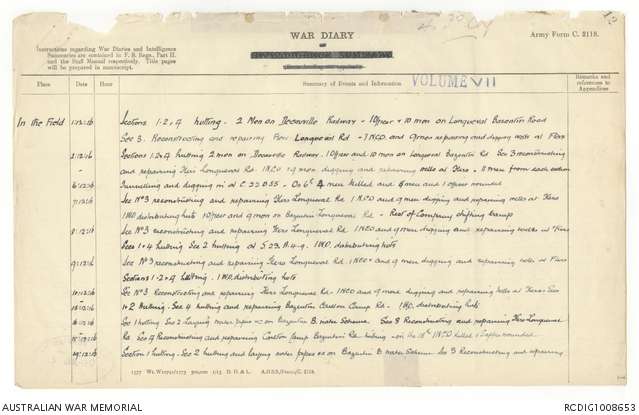 12
WAR DIARY
OF
Army Form C. 2118.
Instructions regarding War Diaries and Intelligence
Summaries are contained in F. S. Regs., Part II.
and the Staff Manual respectively. Title pages
will be prepared in manuscript.
Summary of Events and Information
VOLUME VII
Remarks and
references to
Appendices
Place
Date
Hour
In the Field
1.12.16
Sections 1.2.4 hutting. 2 Men on Decauville Railway - 1 Officer & 10 men on Longueval Bazentin Road
Sec 3. Reconstructing and repairing Longueval Rd - 1 NCO. and 9 men repairing and digging wells at Flers
2.12.16
Sections 1.2.4 hutting 2 men on Decauville Railway. 1 Officer and 10 men on Longueval Bazentin Rd Sec 3 reconstructing
and repairing Flers Longueval Rd 1 NCO & 9 men digging and repairing wells at Flers. 11 men from each section
6.12.16
tunnelling and digging in at On 6th 4 men killed and men and 1 officer wounded
7.12.16
Sec No 3 reconstructing and repairing Flers Longueval Rd 1 NCO and 9 men digging and repairing wells at Flers
distributing huts 1 Officer and 9 men on Bazentin Longueval Rd - Rest of Company shifting camp
8.12.16
Sec No 3 reconstructing and repairing Flers Longueval Rd 1 NCO and 9 men digging and repairing wells at Flers
Secs 1 & 4 hutting Sec 2 hutting at S 23. distributing huts
9.12.16
Sec No 3 reconstructing and repairing Flers Longueval Rd 1 NCO & and 9 men digging and repairing wells at Flers
Sections 1.2.4 hutting. distributing huts
10.12.16
Sec No 3 Reconstructing and repairing Flers Longueval Rd. 1 NCO and 9 men digging and repairing wells at Flers. Secs
1 & 2 hutting. Sec 4 hutting and repairing Bazentin Carlton Camp Rd. distributing huts
Sec 1 hutting. Sec 2 laying water pipes on Bazentin B. water Scheme. Sec 3 Reconstructing and repairing Flers Longueval
Rd. Sec 4 Reconstructing and repairing Carlton Camp Bazentin Rd hutting - on the 18th 1 NCO killed 1 Sapper wounded
19.12.16
Section 1 hutting. Sec 2 hutting and laying water pipes on Bazentin B water Scheme Sec 3 Reconstructing and repairing
AUSTRALIAN WAR MEMORIAL
RCDIG1008653